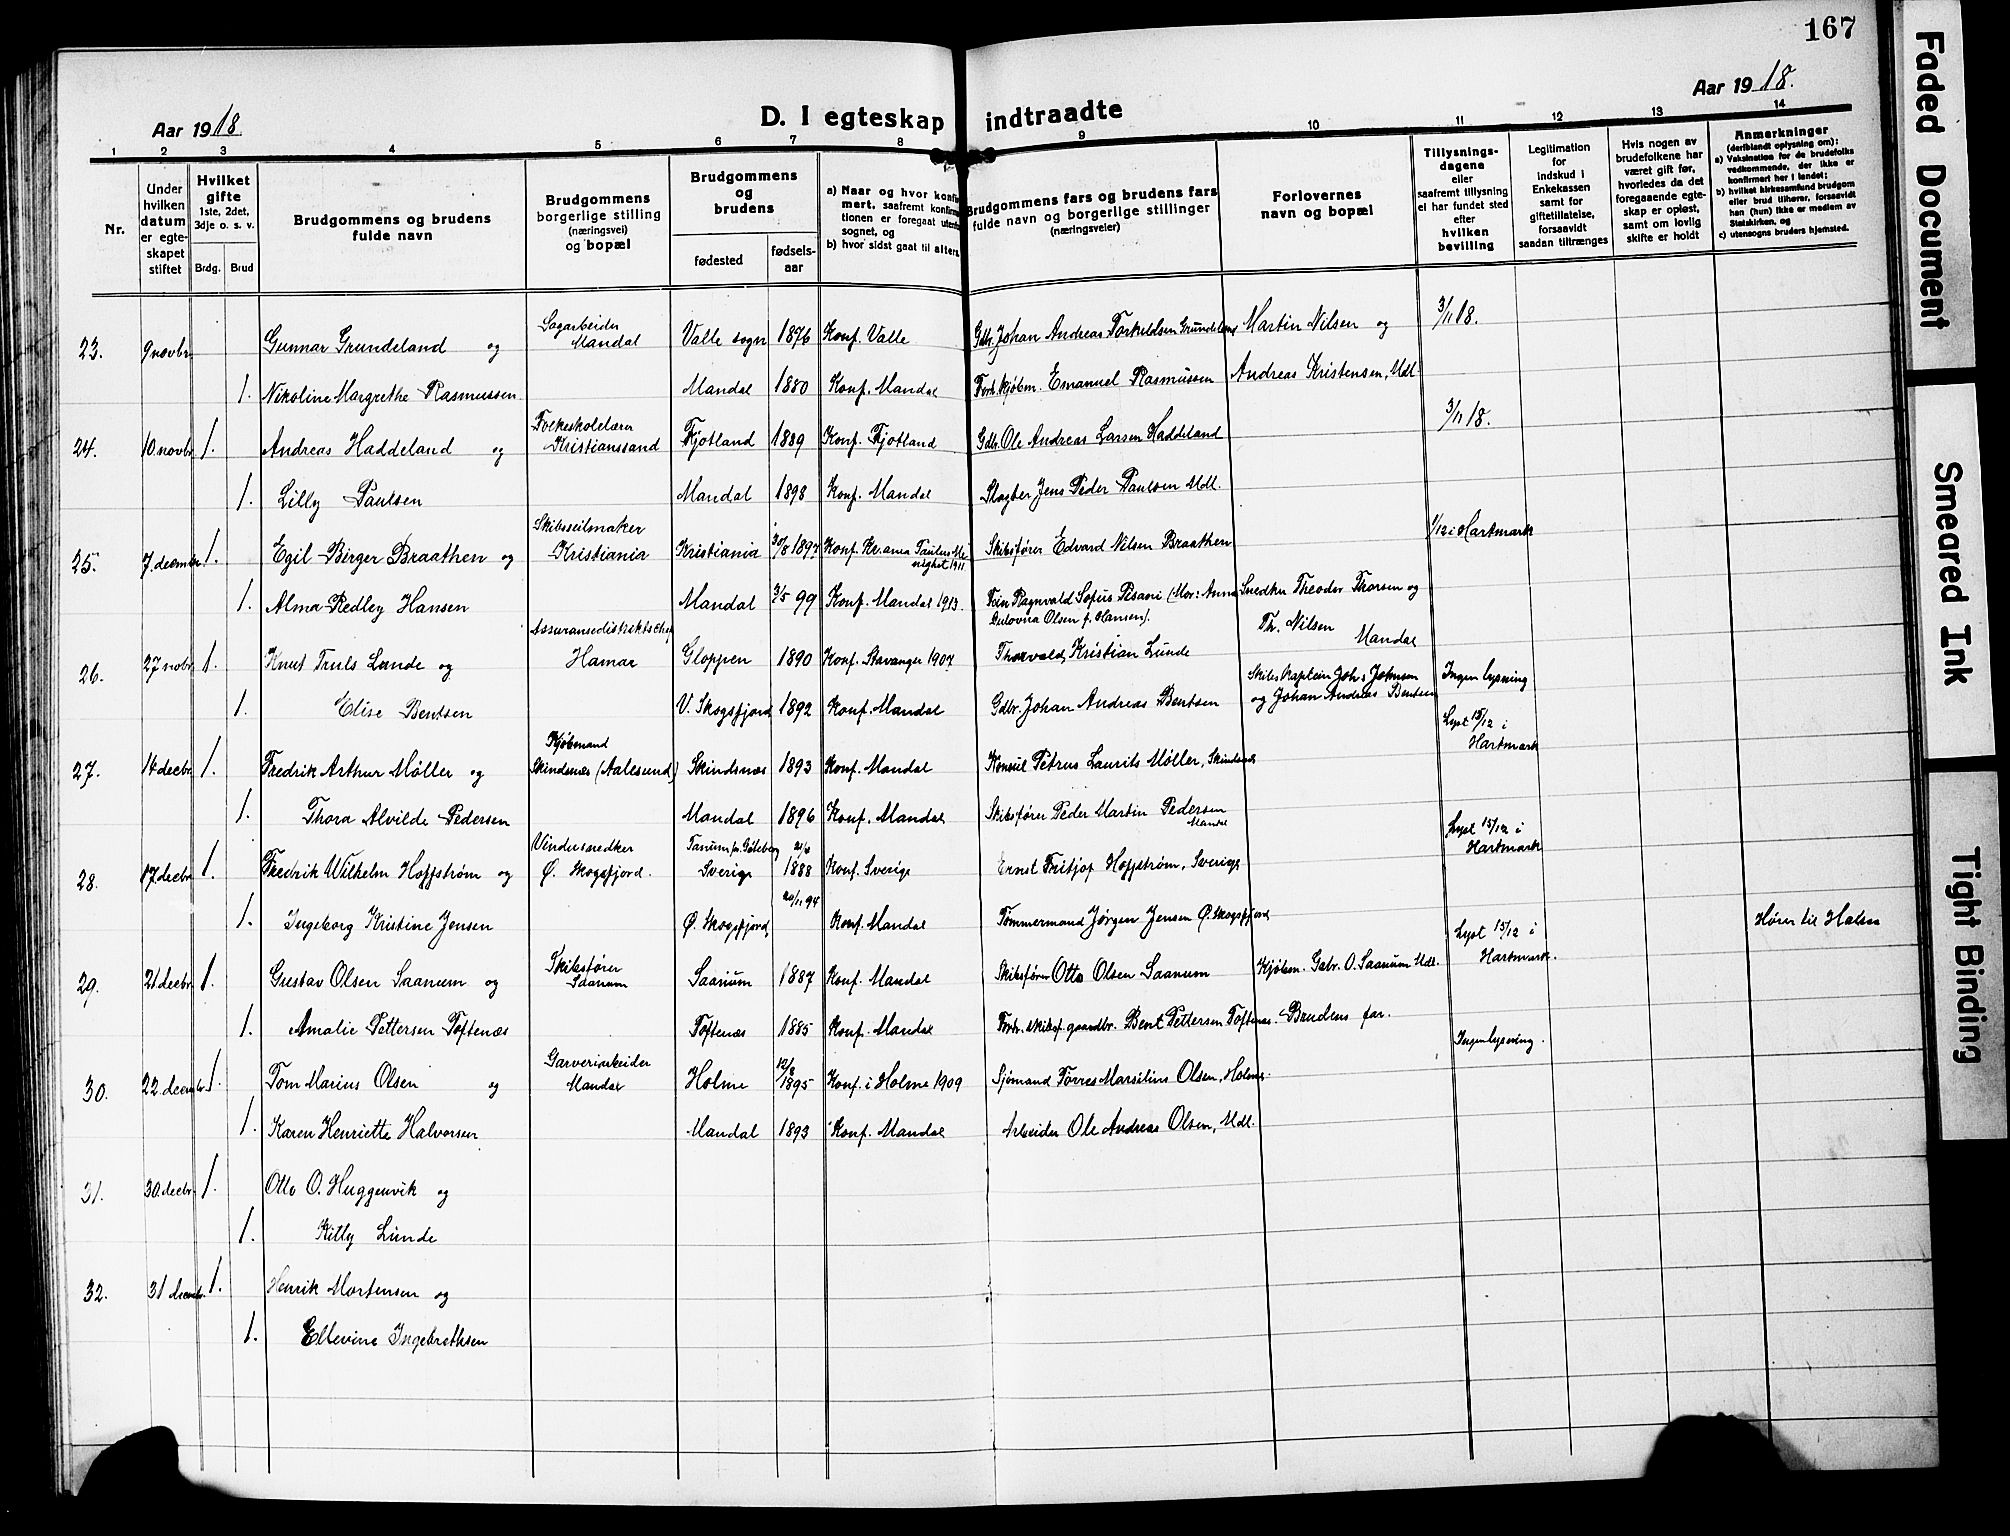 167
Aar 1918
D. I egteskap indtraadte
Aar 1918.
1 2 3 4 5 6 7 8 9 10 11 12 13 14
Nr.
Under hvilken datum er egteskapet stiftet
Hvilket gifte 1ste, 2det, 3dje o. s. v.
Brdg. Brud
Brudgommens og brudens fulde navn
Brudgommens borgerlige stilling (næringsvei) og bopæl
Brudgommens og brudens
fødested
fødselsaar
a) Naar og hvor konfirmert, saafremt konfirmationen er foregaat utenfor sognet, og
b) hvor sidst gaat til alters
Brudgommens fars og brudens fars fulde navn og borgerlige stillinger (næringsveier)
Forlovernes navn og bopæl
Tillysningsdagene eller saafremt tillysning ei har fundet sted efter hvilken bevilling
Legitimation for indskud i Enkekassen samt for giftetillatelse, forsaavidt saadan tiltrænges
Hvis nogen av brudefolkene har været gift før, hvorledes da det foregaaende egteskap er opløst, samt om lovlig skifte er holdt
Anmerkninger (deriblandt oplysning om):
a) Vaksination for de brudefolks vedkommende, der ikke er konfirmert her i landet;
b) hvilket kirkesamfund brudgom eller brud tilhører, forsaavidt han (hun) ikke er medlem av Statskirken, og
c) utensogns bruders hjemsted.
23. 9 novbr. Gunnar Grundeland og Sagarbeider Mandal Valle sogn 1876 Konf. Valle Gdbr. Johan Andreas Torkeldsen Grundeland Martin Nilsen og 3/11 18.
1. Nikoline Margrethe Rasmussen Mandal 1880 Konf. Mandal Forh. kjøbm. Emanuel Rasmussen Andreas Kristensen, Mdl.
24. 10 novbr 1. Andreas Haddeland og Folkeskolelærer Kristianssand Fjotland 1889 Konf. Fjotland Gdbr. Ole Andreas Larsen Haddeland 3/11 18.
1. Lilly Paulsen Mandal 1898 Konf. Mandal Slagter Jens Peder Paulsen Mdl.
25. 7. decmbr 1. Egil Birger Braathen og Skibsseilmaker Kristiania Kristiania 30/8 1897 Konf. Kr.ania Paulus Menighet 1911 Skibsfører Edvard Nilsen Braathen 1/12 i Hartmark
1. Alma Redley Hansen Mandal 3/5 99 Konf. Mandal 1913. Ragnvald Sofus Pisani (Mor: Anna Olsen f. Hansen). Snedker Theodor Thorsen og Th. Nilsen Mandal
26. 27 novbr 1. Knut Truls Lunde og Assuransedistriktschef Hamar Gloppen 1890 Konf. Stavanger 1907 Thorvald Kristian Lunde
1. Elise Bentsen V. Skogsfjord 1892 Konf. Mandal Gdbr. Johan Andreas Bentsen Skibskaptein Johs Johnsen og Johan Andreas Bentsen Ingen lysning
27. 14 decbr 1. Fredrik Arthur Møller og Kjøbmand Skindsnæs (Aalesund) Skindsnæs 1893 Konf. Mandal Konsul Petrus Laurits Møller, Skindsnæs Lyst 15/12 i Hartmark
1. Thora Alvilde Pedersen Mandal 1896 Konf. Mandal Skibsfører Peder Martin Pedersen Mandal
28. 17. decbr 1. Fredrik Wilhelm Hoffstrøm og Ø. Skogsfjord. Tanum pr. Gøteborg Sverige 1888 Konf. Sverige Ernst Fritjof Hoffstrøm, Sverige Lyst 15/12 i Hartmark
1. Ingeborg Kristine Jensen Ø. Skogsfjord 20/11 94 Konf. Mandal Tømmermand Jørgen Jensen Ø. Skogsfjord Hører til Halsen
29. 21 decbr. 1. Gustav Olsen Saanum og Skibsfører Saanum Saanum 1887 Konf. Mandal Skibsfører Otto Olsen Saanum Kjøbm. Gabr. O. Saanum Mdl. Lyst 15/12 i Hartmark.
1. Amalie Pettersen Toftenæs Toftenæs 1885 Konf. Mandal Forh. skibsf. gaardbr. Bent Pettersen Toftenæs. Brudens far. Ingen lysning.
30. 22 decembr. 1. Tom Marius Olsen og Garveriarbeider Mandal Holme 12/8 1895 Konf. i Holme 1909 Sjømand Torres Marsilius Olsen, Holme
1. Karen Henriette Halvorsen Mandal 1893 Konf. Mandal Arbeider Ole Andreas Olsen, Mdl.
31. 30. decbr. 1. Otto O. Huggenvik og
1. Kitty Lunde
32. 31 decmbr. 1. Henrik Mortensen og
1. Ellevine Ingebrethsen
Faded Document
Smeared Ink
Tight Binding